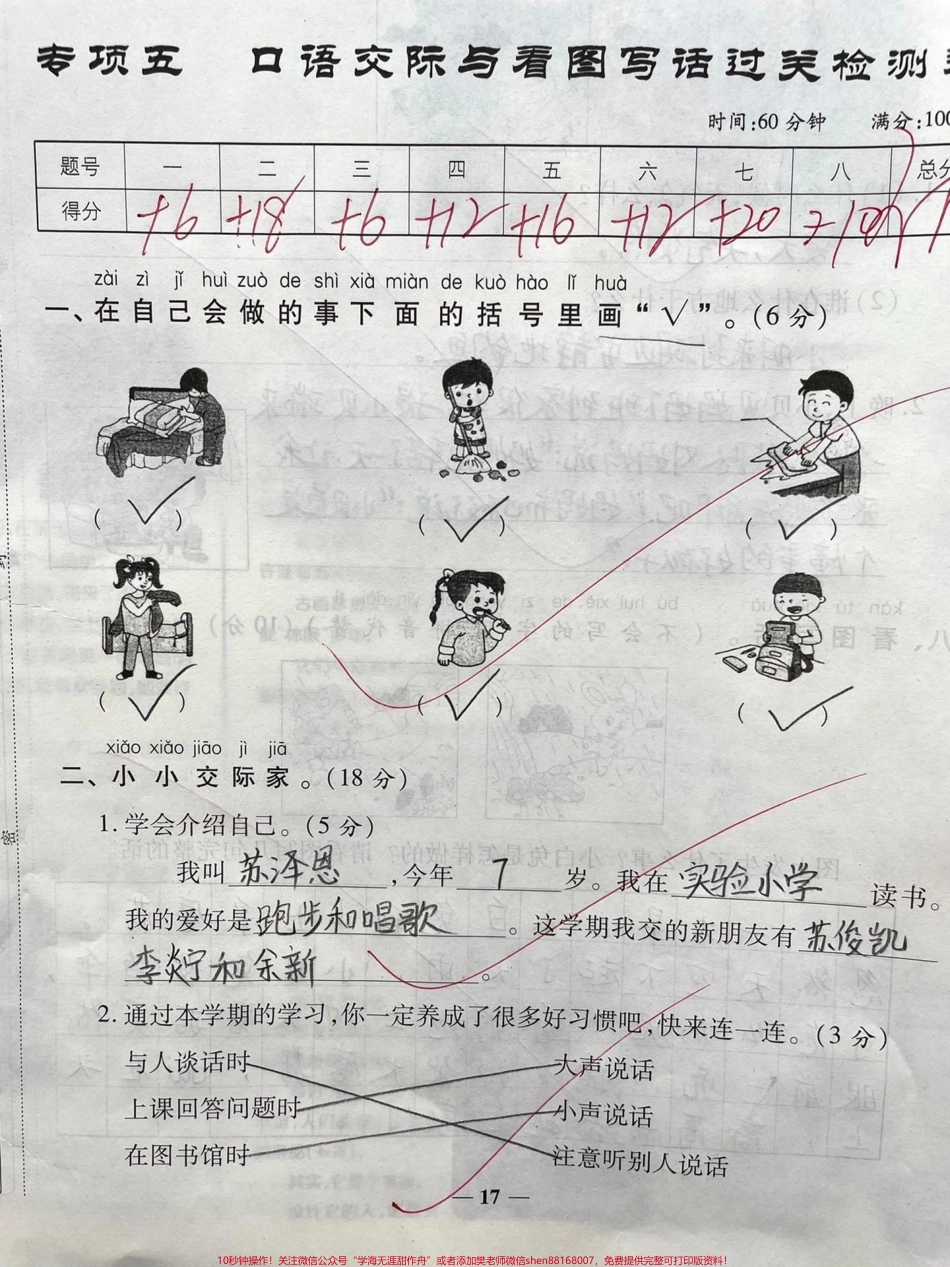 专项五 口语交际与看图写话过关检测
时间:60分钟 满分:100
题号 一 二 三 四 五 六 七 八 总分
得分
zài zì jǐ huì zuò de shì xià miàn de kuò hào lǐ huà
一、在自己会做的事下面的括号里画“√”。(6分)
(√) (√) (√)
(√) (√) (√)
xiǎo xiǎo jiāo jì jiā
二、小小交际家。(18分)
1.学会介绍自己。(5分)
我叫苏泽恩,今年7岁。我在实验小学读书。
我的爱好是跑步和唱歌。这学期我交的新朋友有苏俊凯
李炎宁和余新。
2.通过本学期的学习,你一定养成了很多好习惯吧,快来连一连。(3分)
与人谈话时 大声说话
上课回答问题时 小声说话
在图书馆时 注意听别人说话
— 17 —
密
10秒钟操作！关注微信公众号“学海无涯甜作舟”或者添加樊老师微信shen88168007，免费提供完整可打印版资料！